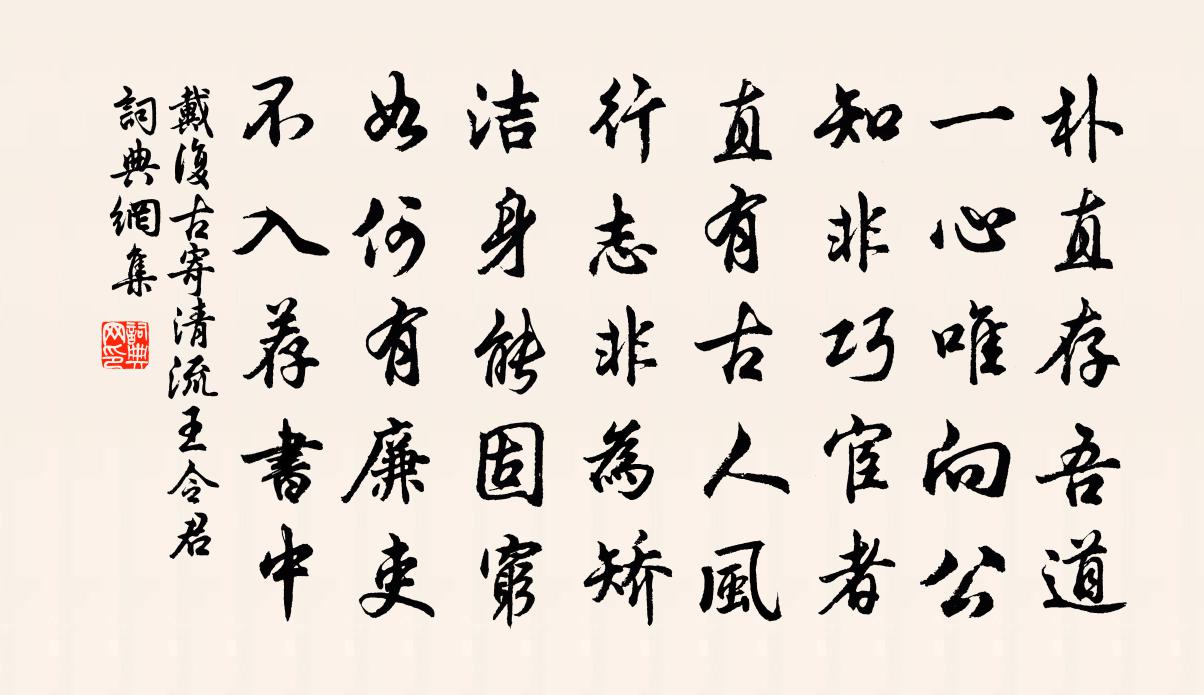 朴直存吾道
一心唯向公
知非巧宦者
直有古人風
行志非為矯
洁身能固窮
如何有廉吏
不入荐書中
戴復古寄清流王令君
詞典網集
詞典網印